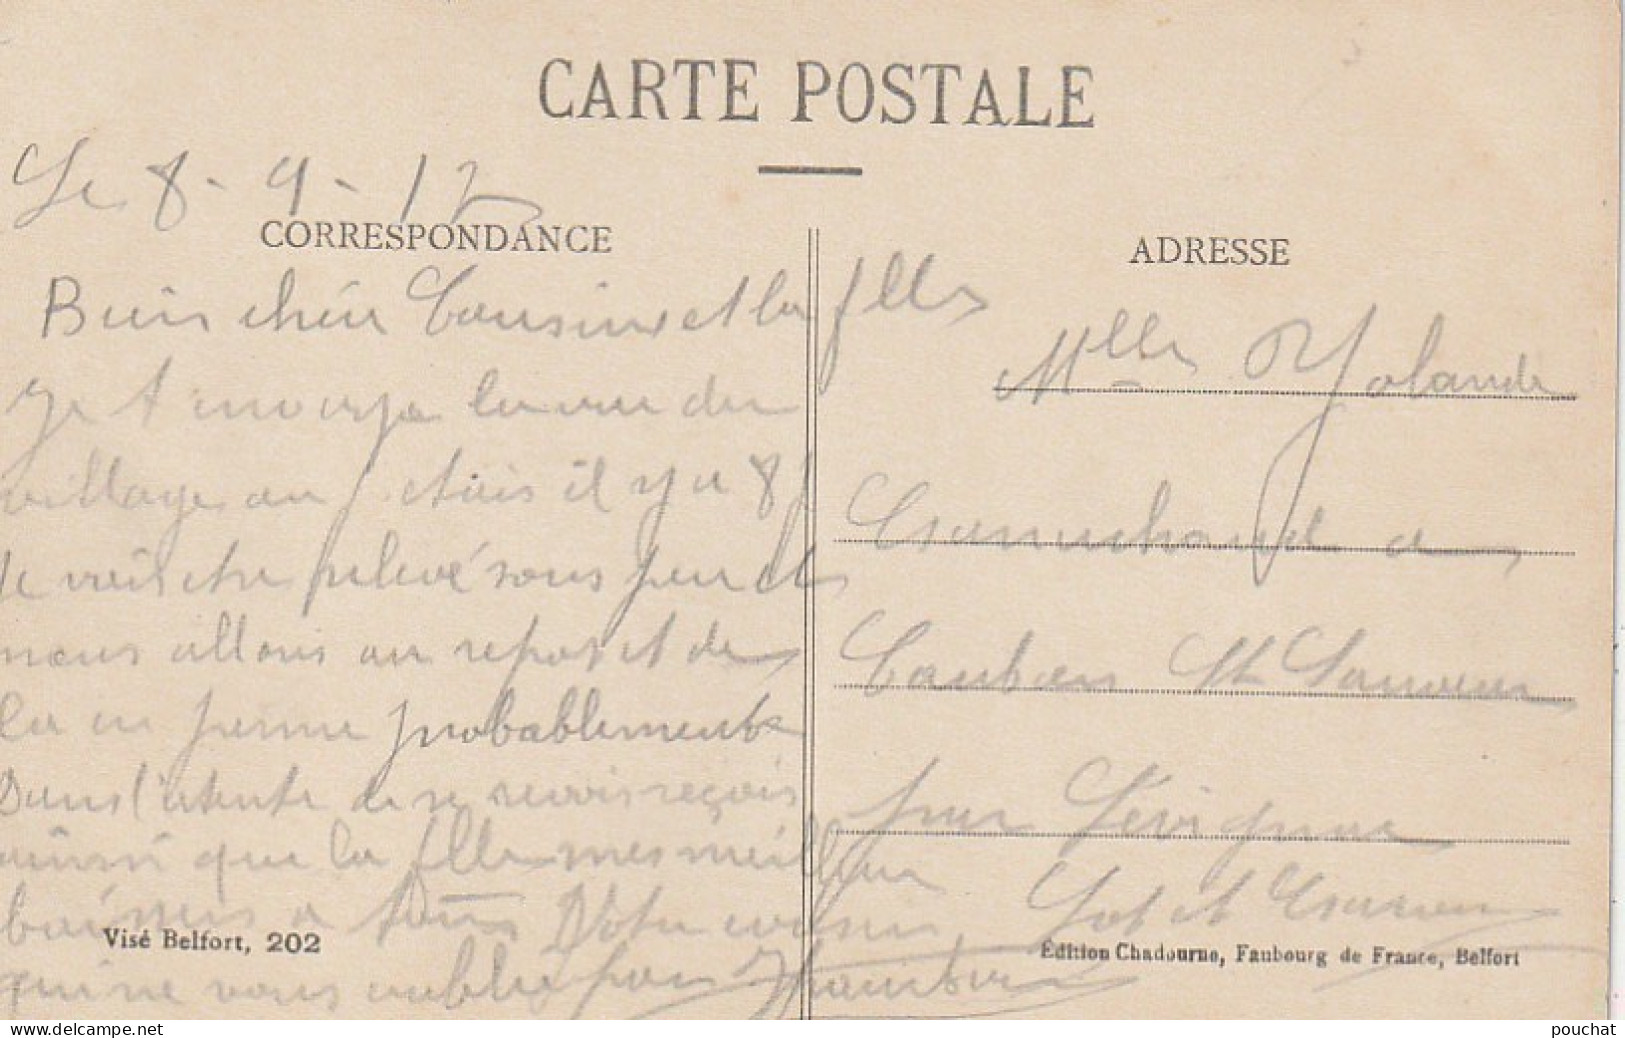 CARTE POSTALE
Le 8-9-17
CORRESPONDANCE
Bien chèr Cousine et la fille
Je t envoye la vue du
village ou j etais il y a 8 j
Je vais etre relevé sous peu et
nous allons au repos et de
la en perme probablement
Dans l'atente de se revoir reçois
ainsi que la fille mes meilleur
baisers a tous Votre cousin
qui ne vous oublie pas
Visé Belfort, 202
ADRESSE
Mlle Yolande
a
Cauban St Sauveur
par Lévignac
Lot et Garonne
Édition Chadourne, Faubourg de France, Belfort
pouchat
delcampe.net